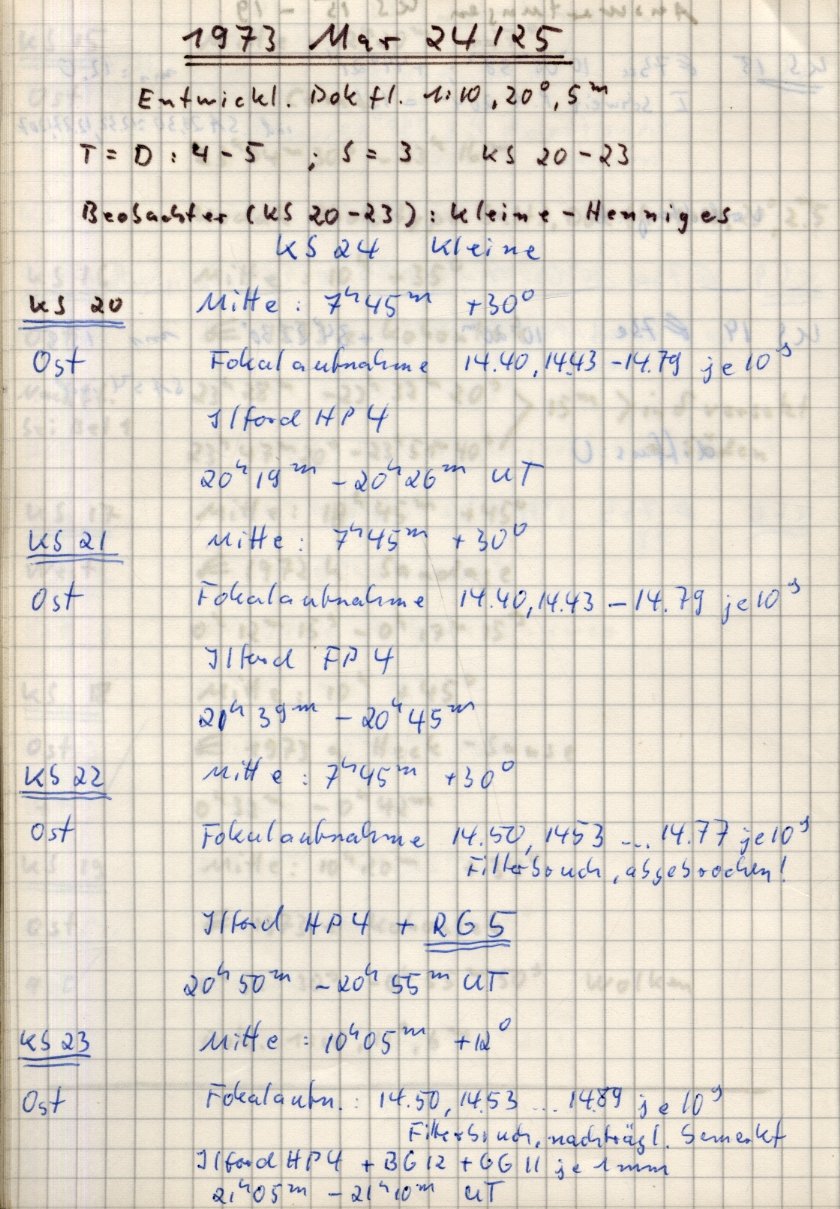 1973 Mar 24/25
Entwickl. Dokfl. 1:10, 20°, 5ᵐ
T = D : 4 - 5 ; S = 3 KS 20 - 23
Beobachter (KS 20 - 23) : Kleine - Henniges
KS 24 Kleine
KS 20 Mitte : 7ʰ45ᵐ +30°
Ost Fokalaufnahme 14.40, 14.43 - 14.79 je 10ˢ
Ilford HP 4
20ʰ19ᵐ - 20ʰ26ᵐ UT
KS 21 Mitte : 7ʰ45ᵐ +30°
Ost Fokalaufnahme 14.40, 14.43 - 14.79 je 10ˢ
Ilford FP 4
20ʰ39ᵐ - 20ʰ45ᵐ
KS 22 Mitte : 7ʰ45ᵐ +30°
Ost Fokalaufnahme 14.50, 14.53 ... 14.77 je 10ˢ
Filterbruch, abgebrochen!
Ilford HP 4 + RG 5
20ʰ50ᵐ - 20ʰ55ᵐ UT
KS 23 Mitte : 10ʰ05ᵐ +12°
Ost Fokalaufn. : 14.50, 14.53 ... 14.89 je 10ˢ
Filterbruch, nachträgl. bemerkt
Ilford HP 4 + BG 12 + GG 11 je 1mm
21ʰ05ᵐ - 21ʰ10ᵐ UT